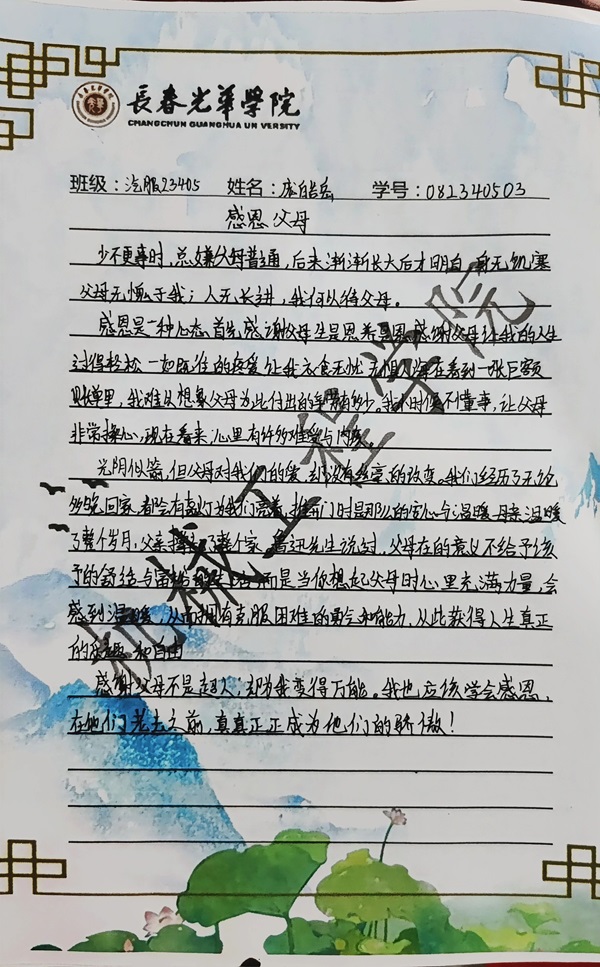 長春光華學院
CHANGCHUN GUANGHUA UNIVERSITY
班级：汽服23405 姓名：庞皓岳 学号：082340503
感恩父母
少不更事时，总嫌父母普通，后来渐渐长大后才明白，身无饥寒
父母无愧于我；人无长进，我何以待父母。
感恩是一种心态，首先感谢父母生是恩养是恩，感谢父母让我的人生
过得轻松一如既往的疼爱让我衣食无忧无惧
在看到一张巨额
账单里，我难以想象父母为此付出的有多少。我小时候不懂事，让父母
非常操心，现在看来心里有许多难受与内疚。
光阴似箭，但父母对我们的爱，却没有丝毫的改变。我们经历了无论
多晚回家，都会有盏灯为我们亮着，推开门时是那么的安心与温暖，母亲温暖
了整个岁月，父亲撑起了整个家。鲁迅先生说过，父母在的意义不给予孩
予的舒适与富裕的生活，而是当你想起父母时心里充满力量，会
感到温暖，从而拥有克服困难的勇气和能力，从此获得人生真正
的乐趣和自由
感谢父母不是超人，却为我变得万能。我也应该学会感恩，
在他们老去之前，真真正正成为他们的骄傲！
机械工程学院